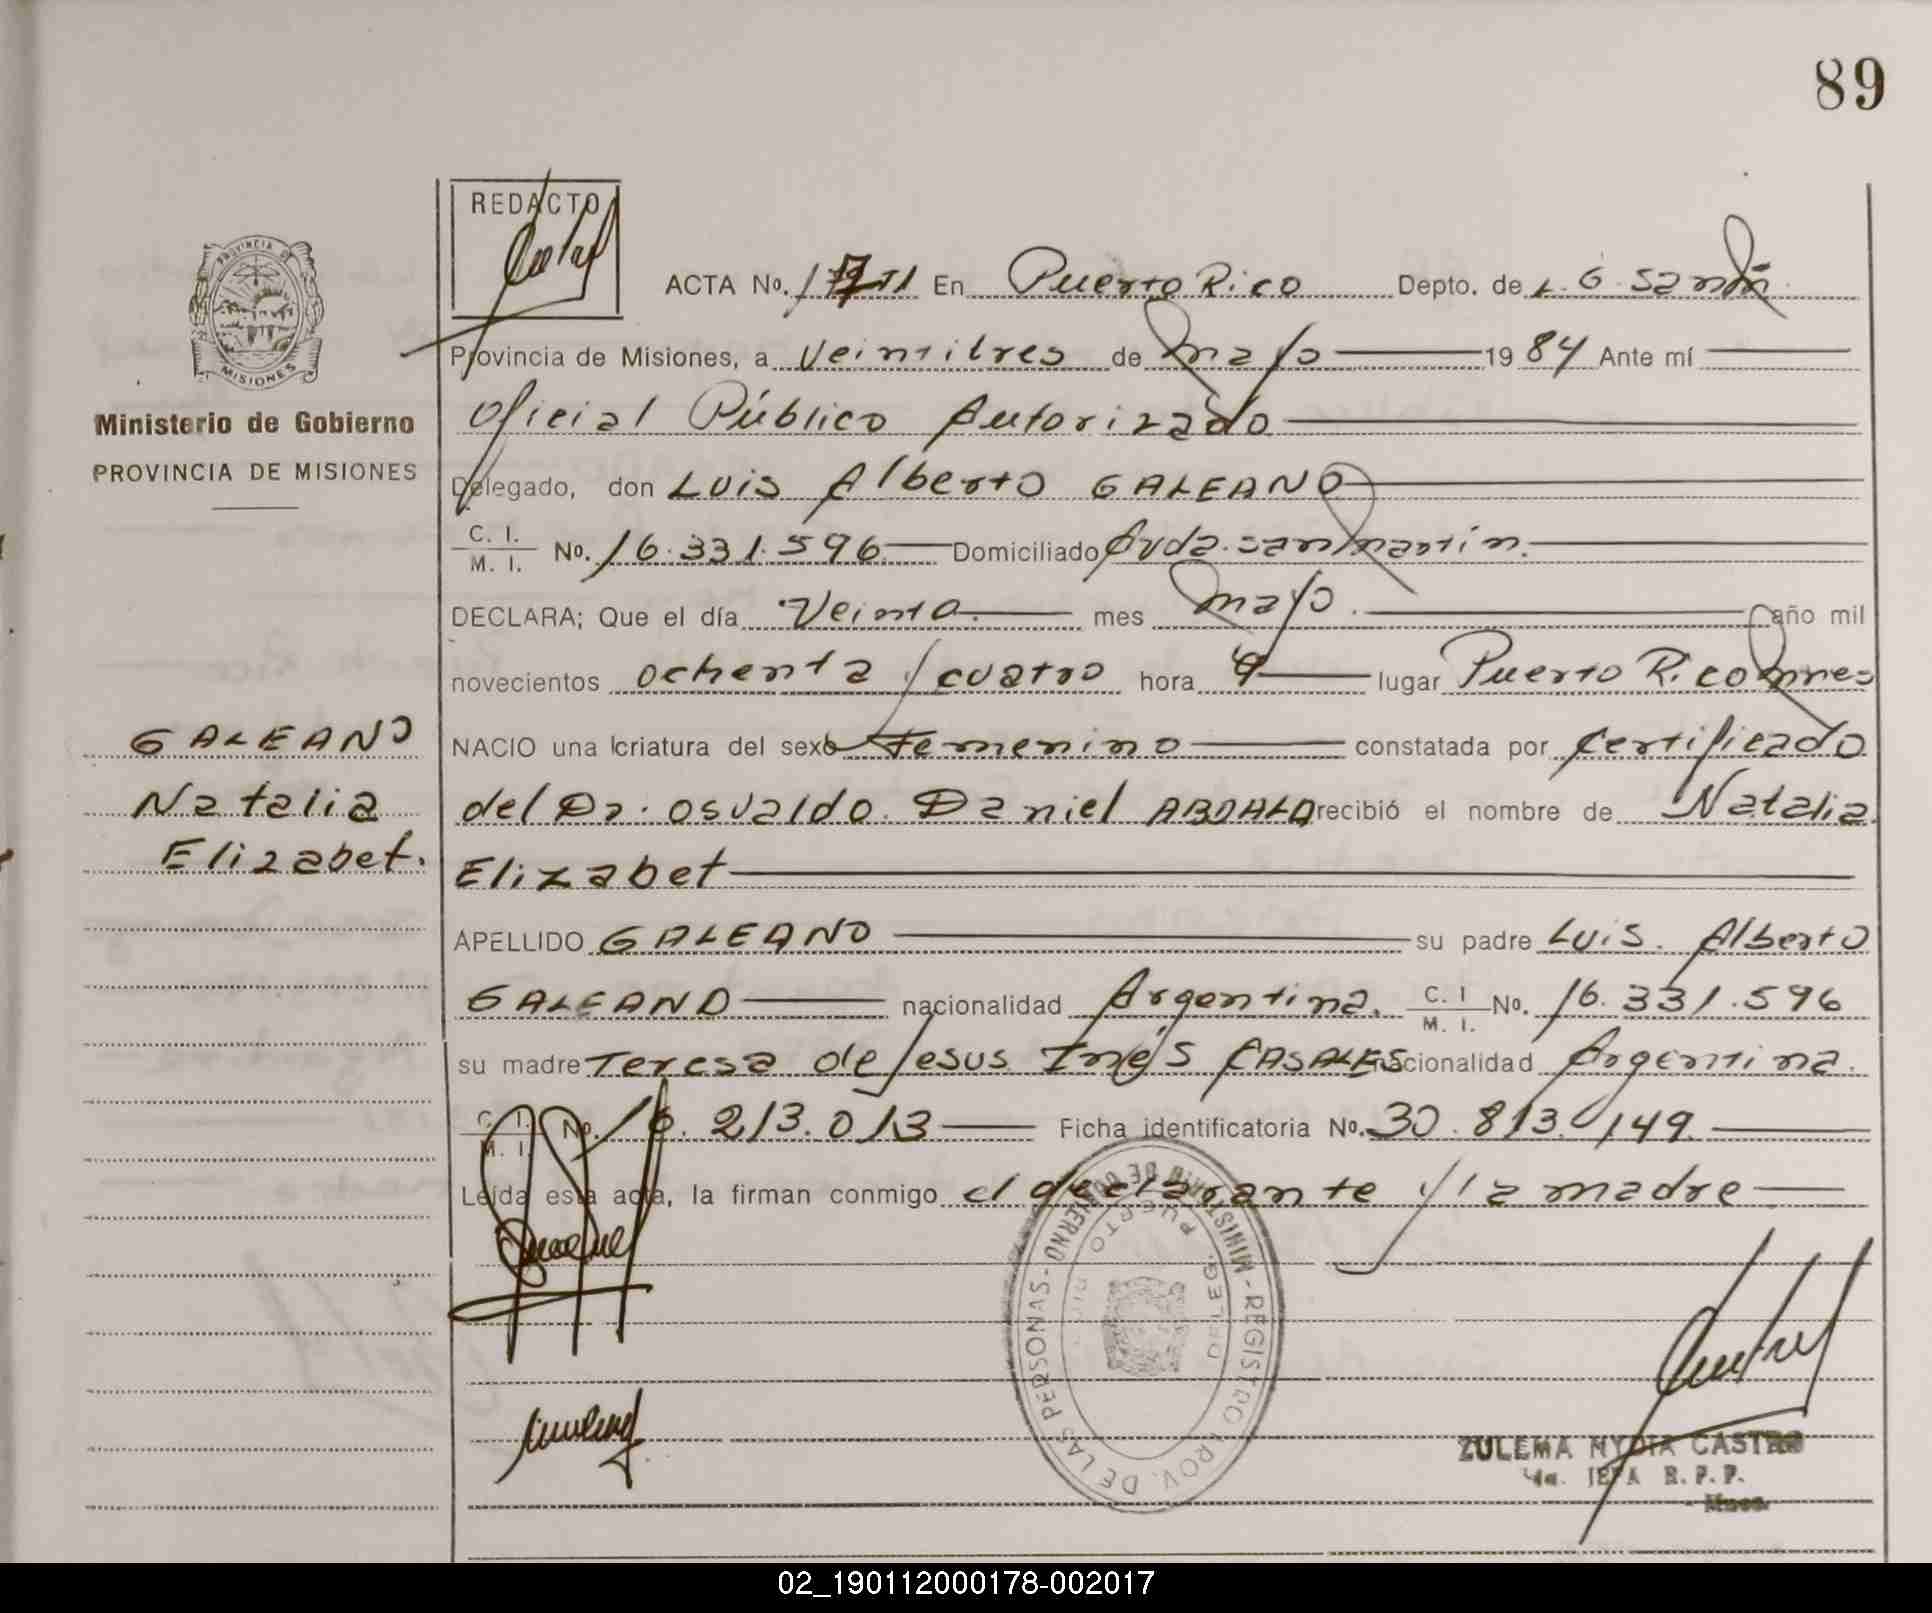 89
REDACTO
PROVINCIA DE
MISIONES
Ministerio de Gobierno
PROVINCIA DE MISIONES
GALEANO
Natalia
Elizabet.
ACTA No. En Puerto Rico Depto. de L. G. San
Provincia de Misiones, a Veintitres de mayo 1984 Ante mí
Oficial Público Autorizado
Delegado, don Luis Alberto GALEANO
C. I.
M. I. No. 16.331.596 Domiciliado Avda. san martin.
DECLARA; Que el día Veinte mes mayo. año mil
novecientos ochenta y cuatro hora lugar Puerto Rico Mnes
NACIO una criatura del sexo Femenino constatada por Certificado
del Dr. Osvaldo. Daniel recibió el nombre de Natalia
Elizabet
APELLIDO GALEANO su padre Luis. Alberto
GALEANO nacionalidad Argentina. C. I
M. I. No. 16.331.596
su madre Teresa de Jesus Inés CASALES nacionalidad Argentina.
C. I.
M. I. No. 16.213.013 Ficha identificatoria No. 30.813.149.
Leída esta acta, la firman conmigo el declarante y la madre
MINISTERIO DE GOBIERNO - REGISTRO PROV. DE LAS PERSONAS -
DELEG. PUERTO RICO
ZULEMA NYDIA CASTRO
JEFA R. P. P.
Mnes.
02_190112000178-002017